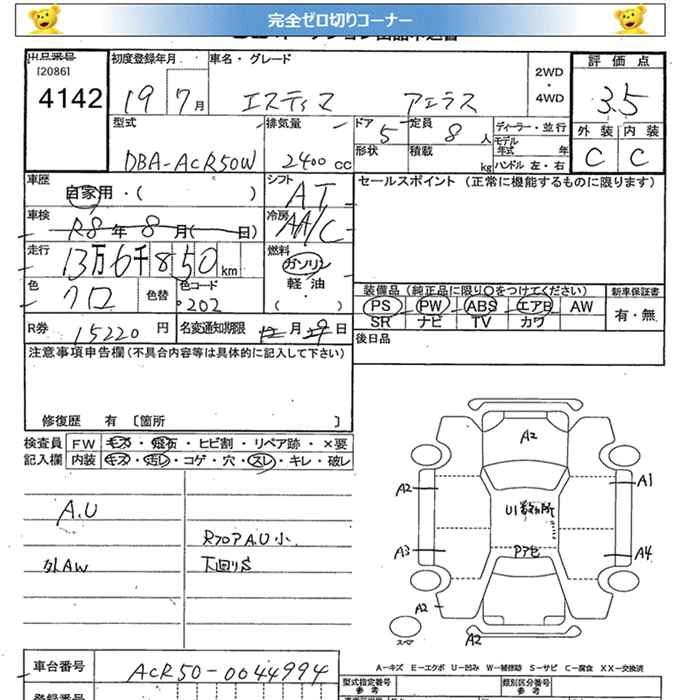 完全ゼロ切りコーナー
出品番号
[2086]
4142
初度登録年月
19 7月
車名・グレード
エスティマ アエラス
2WD
・
4WD
評価点
3.5
外装 内装
C C
型式
DBA-ACR50W
排気量
2400 cc
ドア
5
形状
定員
8人
積載
kg
ディーラー・並行
モデル年式 年
ハンドル 左・右
車歴
自家用・( )
シフト
AT
セールスポイント (正常に機能するものに限ります)
車検
R8年8月( 日)
冷房
AA/C
走行
13万6千850km
燃料
ガソリン
軽油
( )
色
クロ
色替
色コード
202
装備品 (純正品に限り○をつけてください)
PS PW ABS エアB AW
SR ナビ TV カワ
新車保証書
有・無
R券
15220円
名変通知期限
月 日
後日品
注意事項申告欄(不具合内容等は具体的に記入して下さい)
修復歴 有 [箇所 ]
検査員
記入欄
FW キズ・飛石・ヒビ割・リペア跡・×要
内装 キズ・汚レ・コゲ・穴・スレ・キレ・破レ
A.U
外AW
RフロアA.U小
下回りS
A2
A2
A1
U1数ヶ所
A3
A4
A2
スペア
A2
A-キズ E-エクボ U-凹み W-補修跡 S-サビ C-腐食 XX-交換済
車台番号
ACR50-0044994
型式指定番号
参考
類別区分番号
参考
登録番号